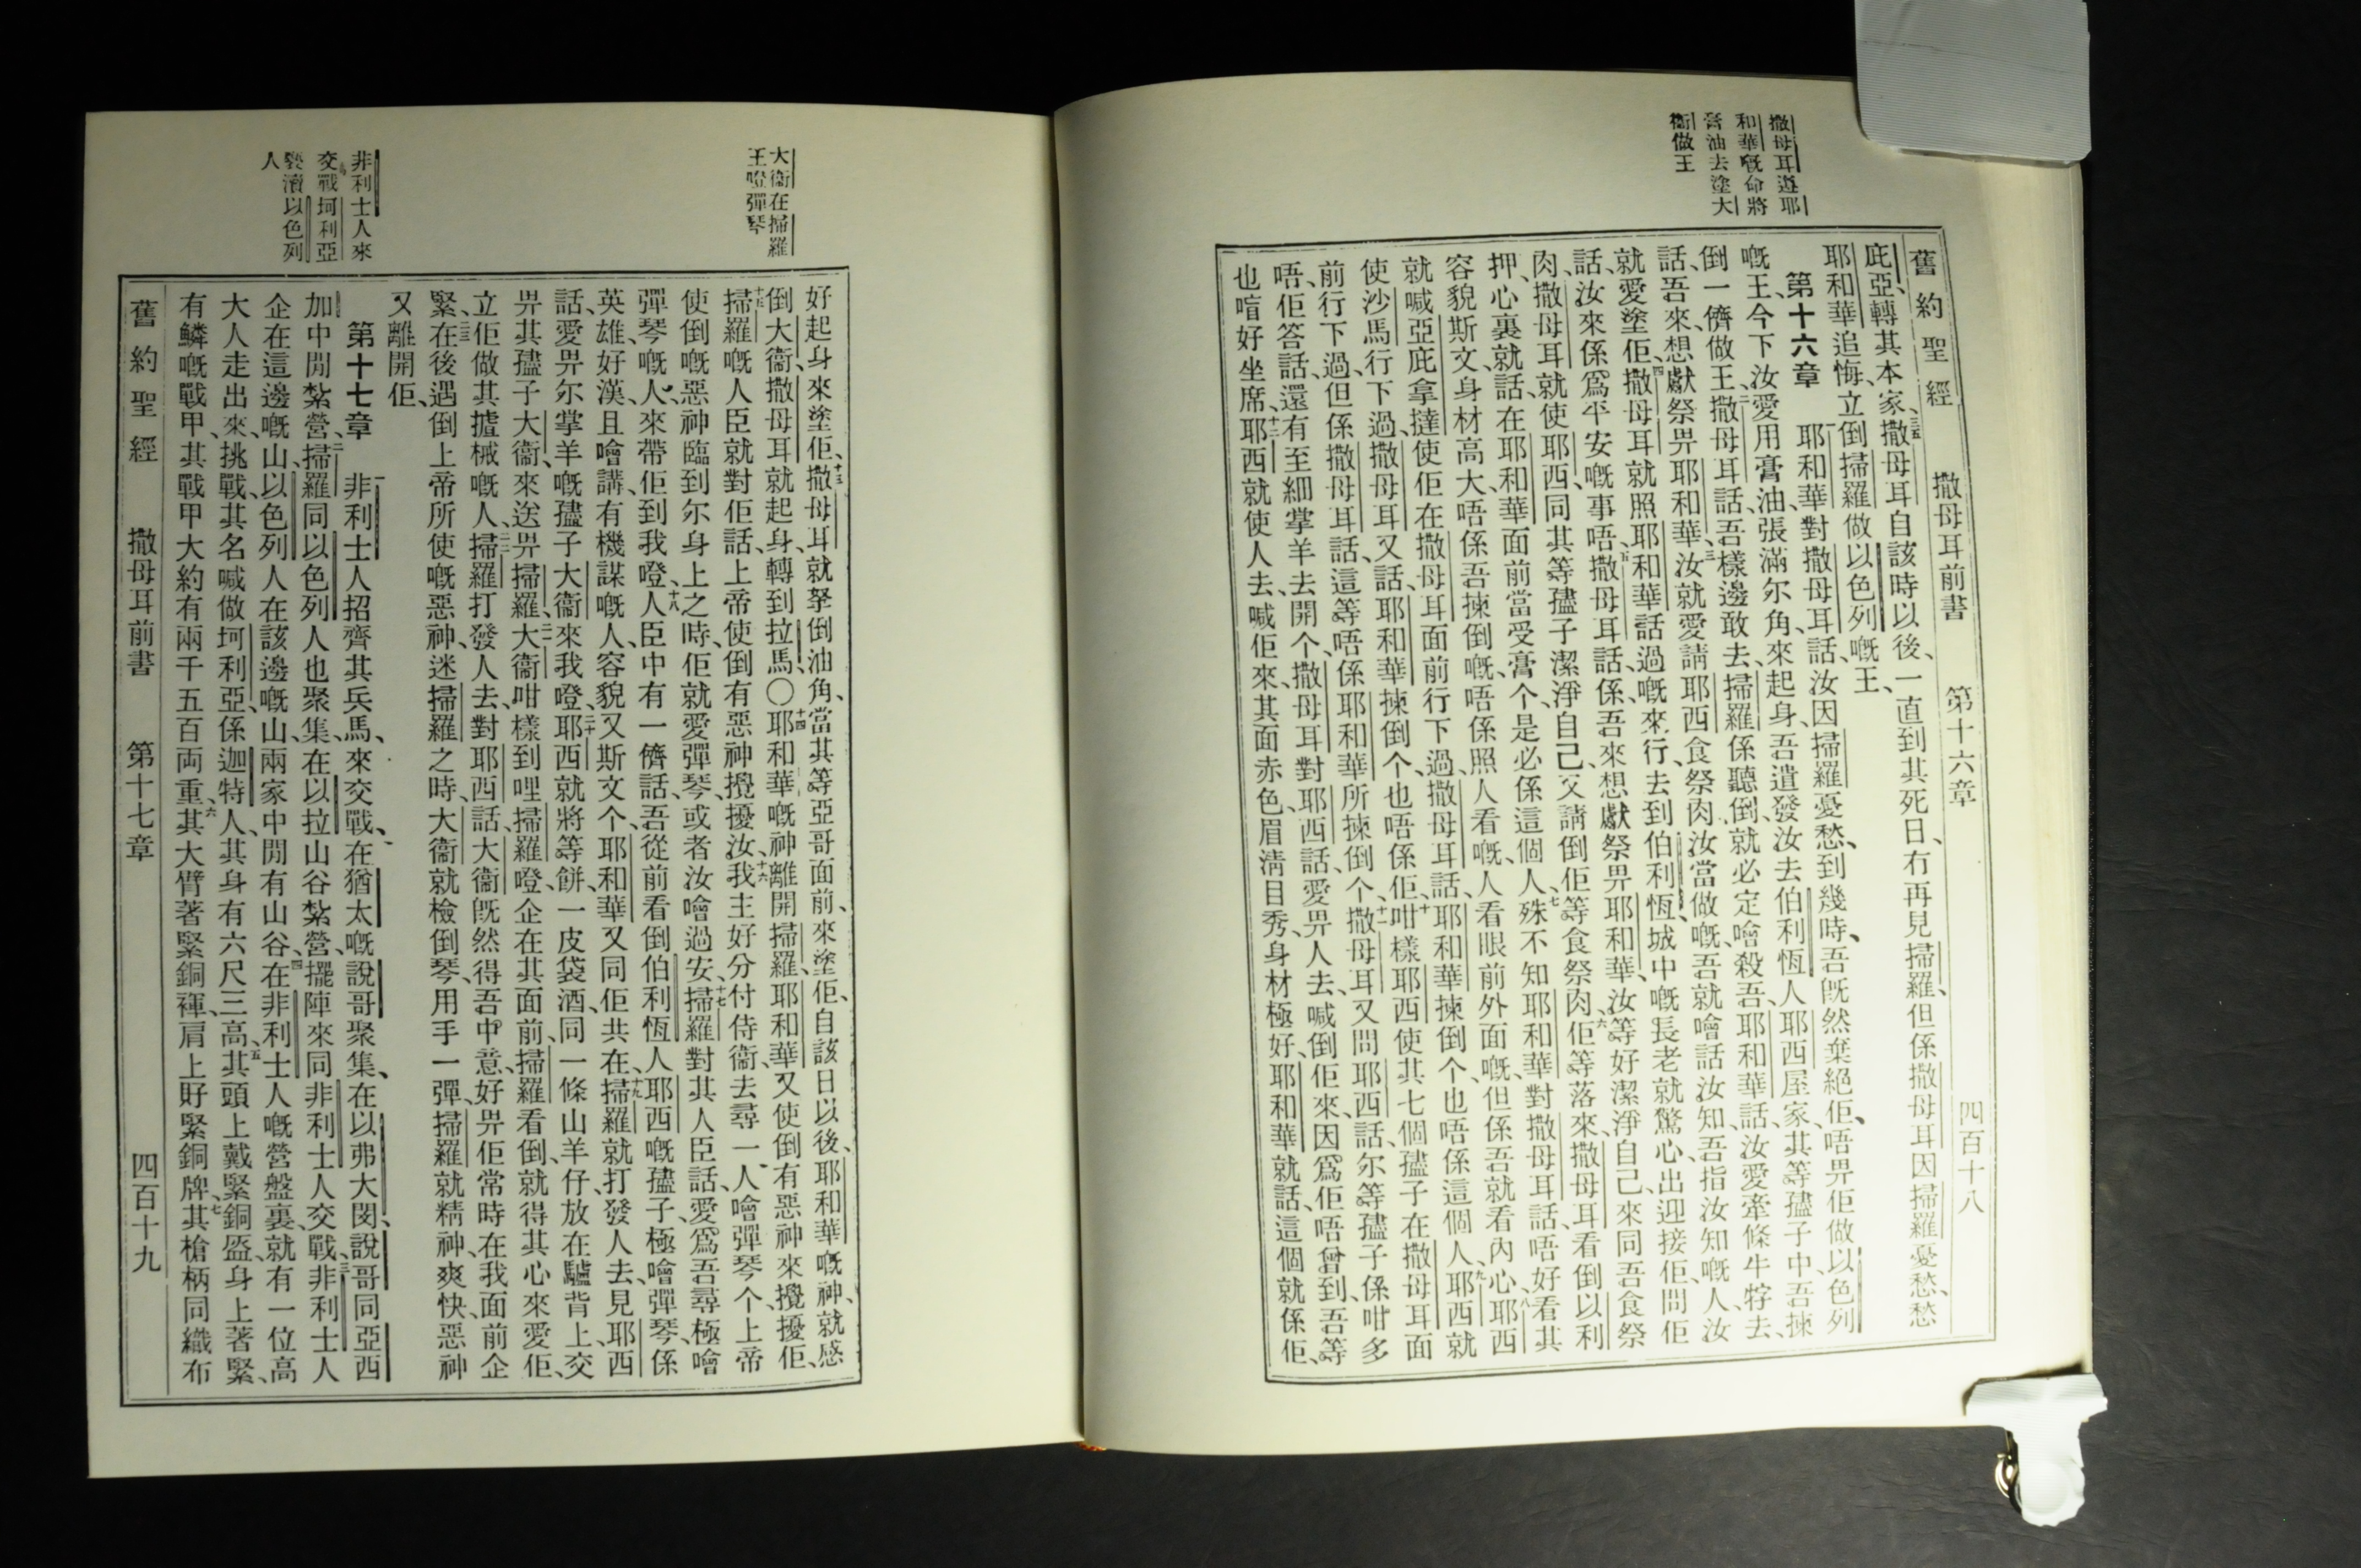 撒母耳遵耶
和華嘅命將
膏油去塗大
衞做王
舊約聖經 撒母耳前書 第十六章 四百十八
庇亞、轉其本家、三五撒母耳自該時以後、一直到其死日、冇再見掃羅、但係撒母耳因掃羅憂愁、愁
耶和華追悔、立倒掃羅做以色列嘅王、
第十六章 一耶和華對撒母耳話、汝因掃羅憂愁、到幾時、吾旣然棄絕佢、唔畀佢做以色列
嘅王、今下汝愛用膏油、張滿尔角、來起身、吾遣發汝去伯利恆人耶西屋家、其等孻子中、吾揀
倒一儕做王、二撒母耳話、吾樣邊敢去、掃羅係聽倒、就必定噲殺吾、耶和華話、汝愛牽條牛牸去、
話、吾來、想獻祭畀耶和華、三汝就愛請耶西食祭肉、汝當做嘅、吾就噲話汝知、吾指汝知嘅人、汝
就愛塗佢、四撒母耳就照耶和華話過嘅來行、去到伯利恆、城中嘅長老就驚心、出迎接佢、問佢
話、汝來係爲平安嘅事唔、五撒母耳話、係、吾來想獻祭畀耶和華、汝等好潔淨自己、來同吾食祭
肉、撒母耳就使耶西、同其等孻子潔淨自己、又請倒佢等食祭肉、六佢等落來、撒母耳看倒以利
押、心裏就話、在耶和華面前當受膏个、是必係這個人、七殊不知耶和華對撒母耳話、唔好看其
容貌斯文、身材高大、唔係吾揀倒嘅、唔係照人看嘅、人看眼前外面嘅、但係吾就看內心、八耶西
就喊亞庇拿撻、使佢在撒母耳面前行下過、撒母耳話、耶和華揀倒个、也唔係這個人、九耶西就
使沙馬行下過、撒母耳又話、耶和華揀倒个、也唔係佢、十咁樣耶西使其七個孻子、在撒母耳面
前行下過、但係撒母耳話、這等唔係耶和華所揀倒个、十一撒母耳又問耶西話、尔等孻子係咁多
唔、佢答話、還有至細掌羊去開个、撒母耳對耶西話、愛畀人去、喊倒佢來、因爲佢唔曾到、吾等
也喑好坐席、十二耶西就使人去、喊佢來、其面赤色、眉淸目秀、身材極好、耶和華就話、這個就係佢、
大衞在掃羅
王嶝彈琴
非利士人來
交戰坷利亞
褻瀆以色列
人
好起身來塗佢、十三撒母耳就孥倒油角、當其等亞哥面前、來塗佢、自該日以後、耶和華嘅神、就感
倒大衞、撒母耳就起身、轉到拉馬〇十四耶和華嘅神離開掃羅、耶和華又使倒有惡神來攪擾佢、
十五掃羅嘅人臣就對佢話、上帝使倒有惡神攪擾汝、十六我主好分付侍衞、去尋一人、噲彈琴个、上帝
使倒嘅惡神臨到尔身上之時、佢就愛彈琴、或者汝噲過安、十七掃羅對其人臣話、愛爲吾尋極噲
彈琴嘅人、來帶佢到我嶝、十八人臣中有一儕話、吾從前看倒伯利恆人耶西嘅孻子、極噲彈琴、係
英雄、好漢、且噲講、有機謀嘅人、容貌又斯文个、耶和華又同佢共在、十九掃羅就打發人去、見耶西
話、愛畀尔掌羊嘅孻子大衞、來我嶝、二十耶西就將等餅、一皮袋酒、同一條山羊仔、放在驢背上、交
畀其孻子大衞、來送畀掃羅、二一大衞咁樣到哩掃羅嶝、企在其面前、掃羅看倒、就得其心來愛佢、
立佢做其攎械嘅人、二二掃羅打發人去、對耶西話、大衞旣然得吾中意、好畀佢常時在我面前企
緊、二三在後遇倒上帝所使嘅惡神、迷掃羅之時、大衞就檢倒琴、用手一彈、掃羅就精神爽快、惡神
又離開佢、
第十七章 一非利士人招齊其兵馬、來交戰、在猶太嘅說哥聚集、在以弗大閔、說哥同亞西
加中閒紮營、二掃羅同以色列人也聚集、在以拉山谷紮營、擺陣來同非利士人交戰、三非利士人
企在這邊嘅山、以色列人在該邊嘅山、兩家中閒有山谷、四在非利士人嘅營盤裏、就有一位高
大人走出來、挑戰、其名喊做坷利亞、係迦特人、其身有六尺三高、五其頭上戴緊銅盔、身上著緊、
有鱗嘅戰甲、其戰甲大約有兩千五百両重、六其大臂著緊銅褌、肩上孖緊銅牌、七其槍柄同織布
舊約聖經 撒母耳前書 第十七章 四百十九